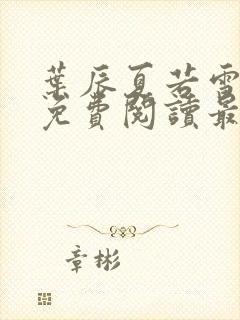 葉辰夏若雪
免費閱讀最
章彬